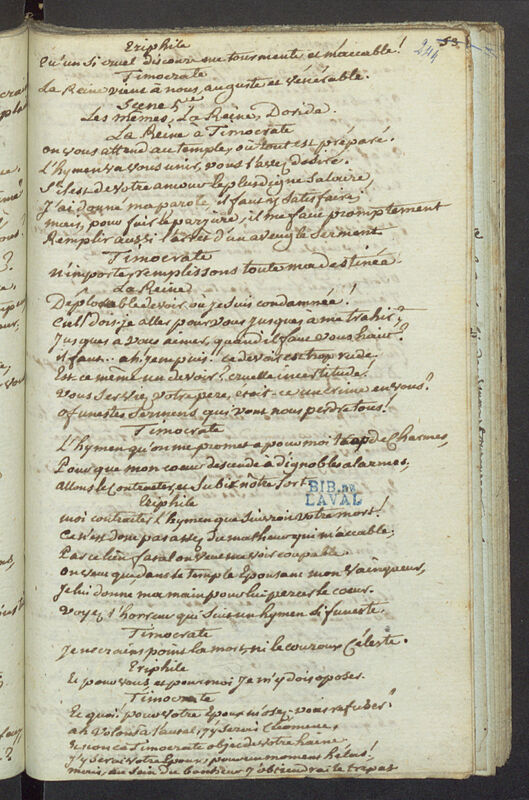 53.
244
Eriphile
Qu'un si cruel discours me tourmente et m'accable!
Timocrate
La Reine vient à nous, auguste et vénérable.
Scene 5e
Les mêmes, La Reine, Doride.
La Reine à Timocrate
on vous attend au temple, où tout est préparé.
L'hymen va vous unir, vous l'avez désiré.
S'il est de votre amour le plus digne salaire,
J'ai donné ma parole, il faut y satisfaire;
mais, pour fuir le parjure, il me faut promptement
Remplir aussi l'arrêt d'un aveugle serment
Timocrate
n'importe, remplissons toute ma destinée.
La Reine
Déplorable devoir, où je suis condamnée!
Ciel! dois-je aller pour vous jusques à me trahir?
Jusques à vous aimer, quand il faut vous haïr?
il faut... ah, je ne puis! ce devoir est trop rude.
Est ce même un devoir? cruelle incertitude!
vous servir votre pere, etait-ce un crime en vous?
o funestes sermens qui vont nous perdre tous!
Timocrate
L'hymen qu'on me promet a pour moi trop de Charmes,
Pour que mon coeur descende à d'ignobles alarmes;
allons le contracter, et subir nôtre sort
BIB. DE
LAVAL
Eriphile
moi contracter l'hymen que suivroit votre mort!
Ce n'est donc pas assez du malheur qui m'accable;
Par ce lien fatal on veut me voir coupable.
on veut que dans le temple Epousant mon vainqueur,
Je lui donne ma main pour lui percer le coeur.
voyez l'horreur qui suit un hymen si funeste.
Timocrate
Je ne crains point la mort, ni le couroux Céleste.
Eriphile
Et pour vous et pour moi je m'y dois oposer.
Timocrate
Et quoi! pour votre Epoux m'osez-vous refuser?
ah volons à l'autel, j'y serai Cléomene,
Et non ce Timocrate objet de votre haine
J'y serai votre Epoux, pour un moment hélas!
mais, au sein du bonheur j'obtiendrai le trépas